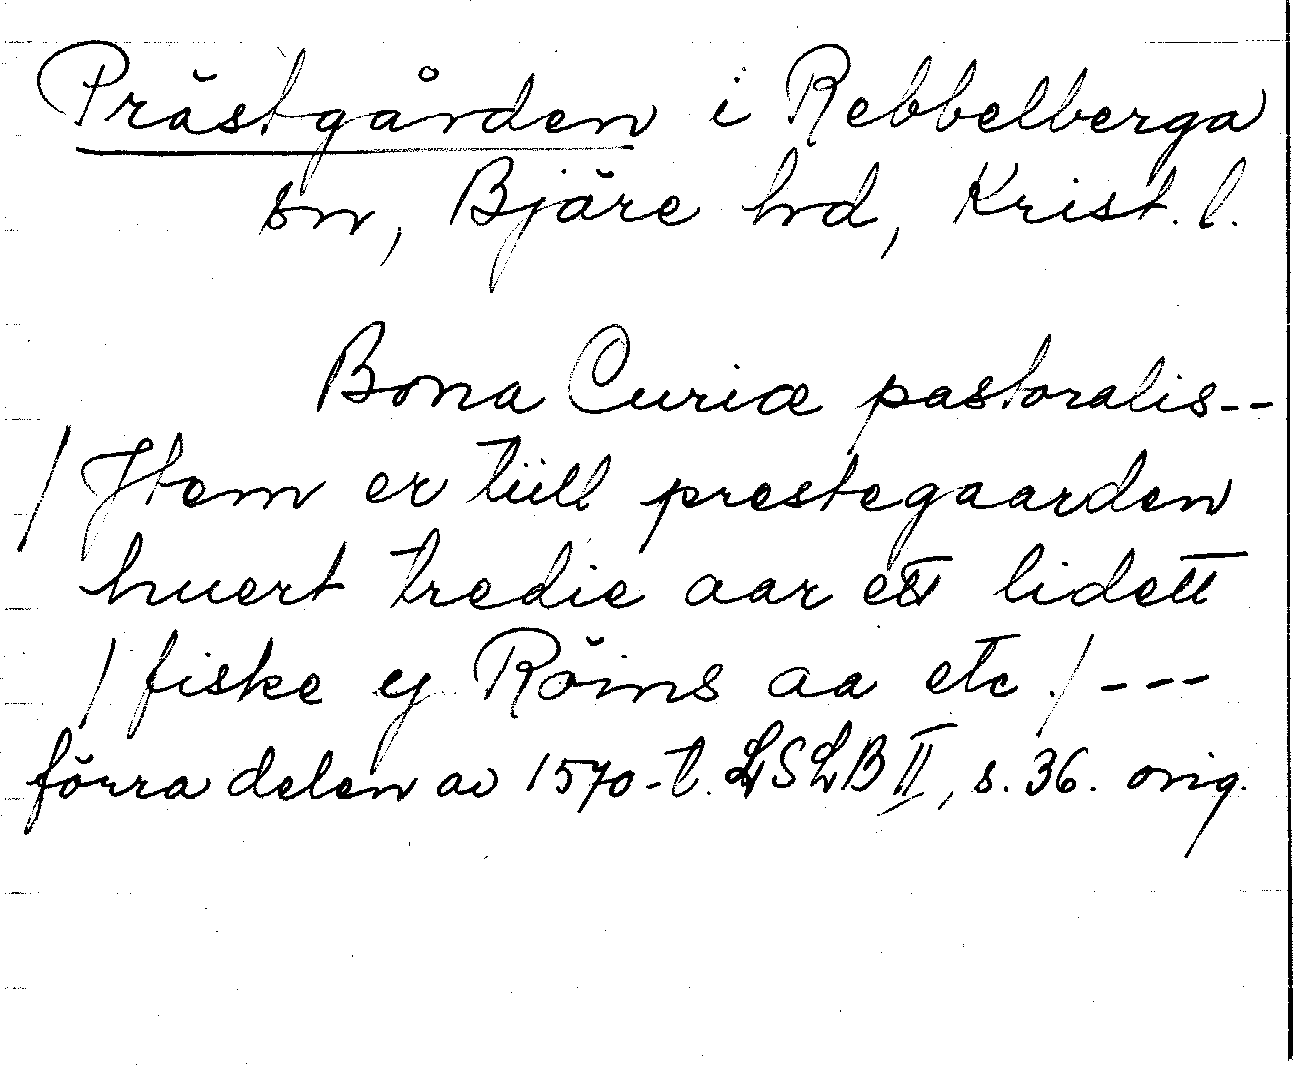 Prästgården i Rebbelberga
sn, Bjäre hd, Krist. l.
Bona Curiæ pastoralis--
/ Jtem er tiill prestegaarden
huert tredie aar ett lidett
/ fiske y Röins aa etc./---
förra delen av 1570-t. LSLB II, s. 36. orig.